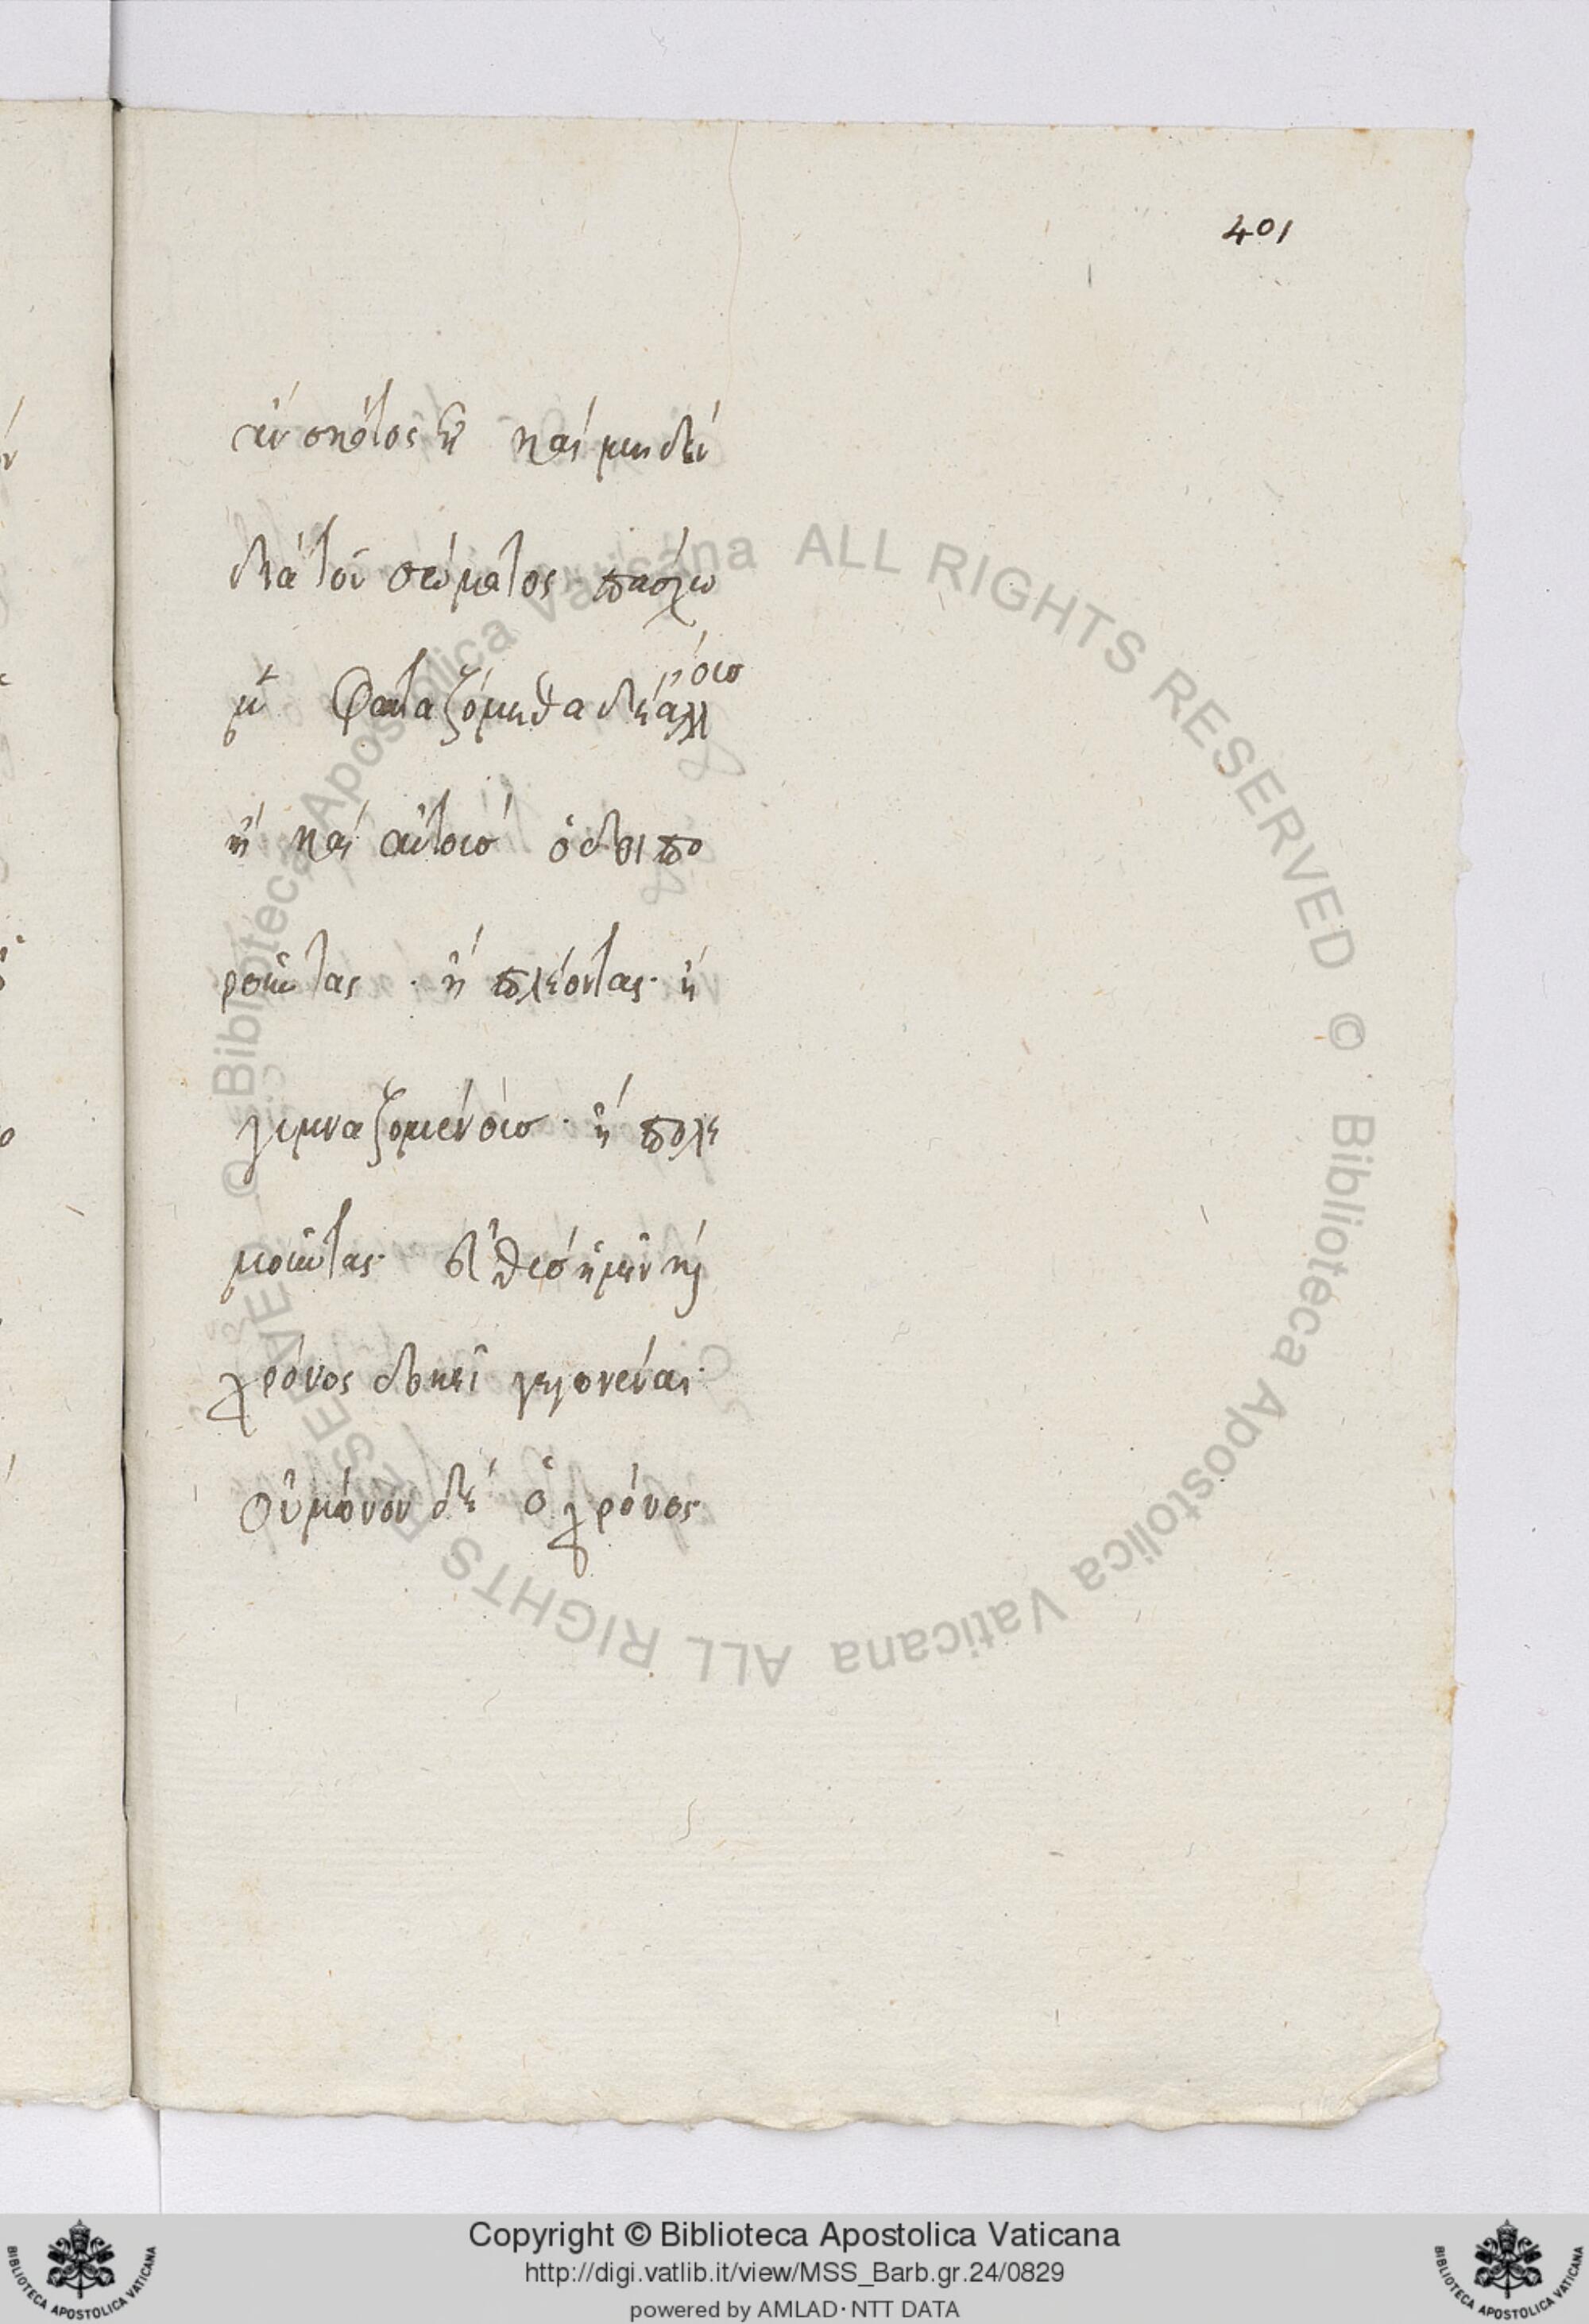 401
ἀν σκότος ἦ καὶ μηδέν
διὰ τοῦ σώματος πάσχω
μεν φανταζόμεθα δὲ ἄλλους
ἢ καὶ αὐτοὺς ὁδοιπο
ροῦντας · ἢ πλέοντας · ἢ
γυμναζομένους · ἢ πολε
μοῦντας · εὐθὺς ἡμῖν καὶ
χρόνος δοκεῖ γεγονέναι ·
οὐ μόνον δὲ ὁ χρόνος
Biblioteca Apostolica Vaticana ALL RIGHTS RESERVED © Biblioteca Apostolica Vaticana ALL RIGHTS RESERVED ©
Copyright © Biblioteca Apostolica Vaticana
http://digi.vatlib.it/view/MSS_Barb.gr.24/0829
powered by AMLAD · NTT DATA
BIBLIOTECA APOSTOLICA VATICANA
BIBLIOTECA APOSTOLICA VATICANA